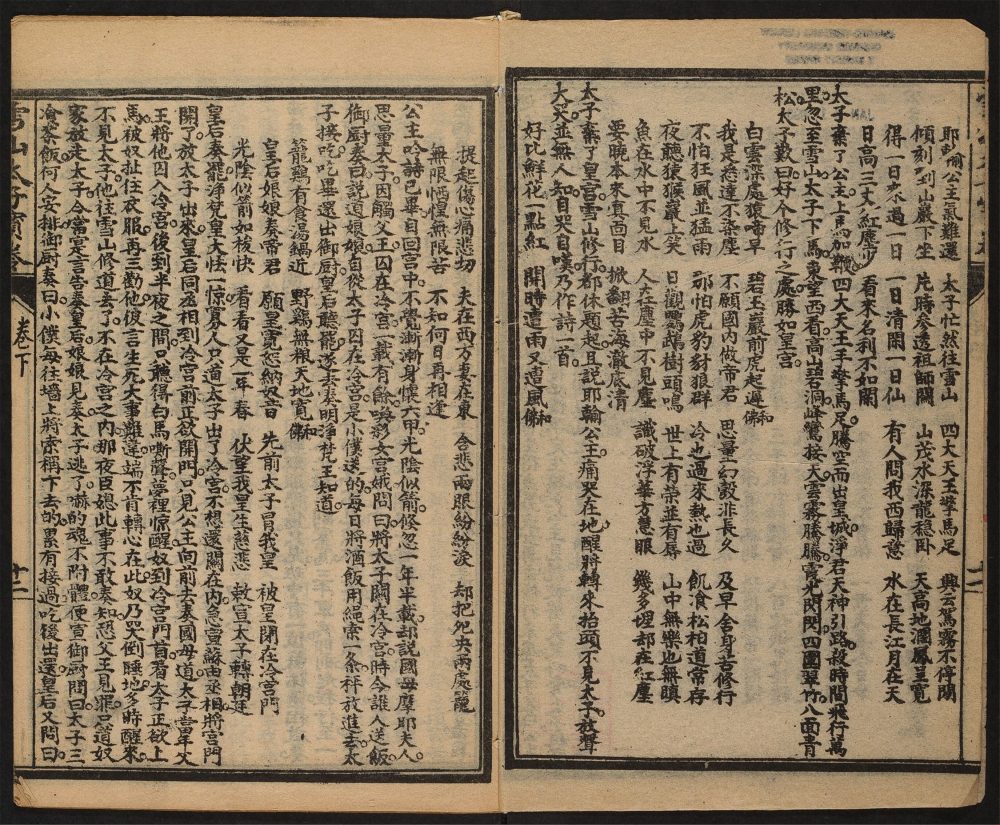 耶輸公主氣難還　太子忙然往雪山　四大天王擎馬足　興云駕霧不停閑
傾刻到山嚴下坐　片時參透祖師關　山茂水深龍穩臥　天高地濶鳳呈寬
得一日來過一日　一日清閑一日仙　有人問我西歸意　水在長江月在天
日高三丈紅塵少　看來名利不如閑
太子棄了公主上馬加鞭四大天王手擎馬足騰空而出皇城淨君天神引路殺時間飛行萬
里忽至雪山太子下馬東望西看高山岩洞峰鸞接天雲霧騰騰霞光閃閃四圍翠竹八面青
松太子歎曰好个修行之處勝如皇宮
白雲深處猿啼早　碧玉巖前虎起遲和佛　思量幻殼非長久　及早舍身苦修行
我是悉達不染塵　不願國内做帝君　冷也過來熱也過　飢食松柏道常存
不怕狂風並猛雨　那怕虎豹豺狼群　世上有榮並有辱　山中無樂也無嗔
夜聽猿猴巖上笑　日觀鸚鵡樹頭鳴　識破浮華方慧眼　幾多埋却在紅塵
魚在水中不見水　人在塵中不見塵
要曉本來真面目　掀翻苦海澈底清
太子棄了皇宮雪山修行都休題起且説耶輸公主痛哭在地醒將轉來抬頭不見太子放聲
大哭並無人知自哭自嘆乃作詩一首
好比鮮花一點紅　開時遭雨又遭風和佛
提起傷心痛悲切　夫在西方妻在東　含悲兩眼紛紛淚　却把兇央兩處籠
無限恓惶無限苦　不知何日再相逢
公主吟詩已畢自回宮中不覺漸漸身懷六甲光陰似箭修忽一年半載却説國母摩耶夫人
思量太子因觸父王囚在冷宮一載有餘喚彩女宮娥問曰將太子關在冷宮時今誰人送飯
御厨奏曰説道娘娘自從太子囚在冷宮是小僕送的每日將酒飯用繩索一条秤放進去太
子接吃吃畢還出御厨皇后聽罷遂去奏明淨梵王知道
籠鷄有食湯鍋近　野鷄無粮天地寬和佛
皇后娘娘奏帝君　願皇寬恕納奴言　先前太子冒我皇　被皇閉在冷宮門
光陰似箭如梭快　看看又是一年春　伏望我皇生慈悲　敕宣太子轉朝廷
皇后奏罷淨梵皇大怯一惊寡人只道太子出了冷宮不想還關在内急宣蘇由丞相將宮門
開了放太子出來皇后同丞相到冷宮前正欲開門只見公主向前去奏國母道太子當年父
王將他囚入冷宮後到半夜之間只聽得白馬嘶聲夢裡惊醒奴到冷宮門首看太子正欲上
馬被奴扯住衣服再三勸他彼言生死大事難違端不肯轉心在此奴乃哭倒睡地多時醒來
不見太子他往雪山修道去了不在冷宮之内那夜臣媳此事不敢奏知恐父王見罪只道奴
家放走太子今當实言告奏皇后娘見奏太子逃了嚇的魂不附體便宣御厨問曰太子三
飡茶飯何人安排御厨奏曰小僕每往墙上將索稱下去的累有接過吃後出還皇后又問曰
雪山太子寳卷
卷下
廿二